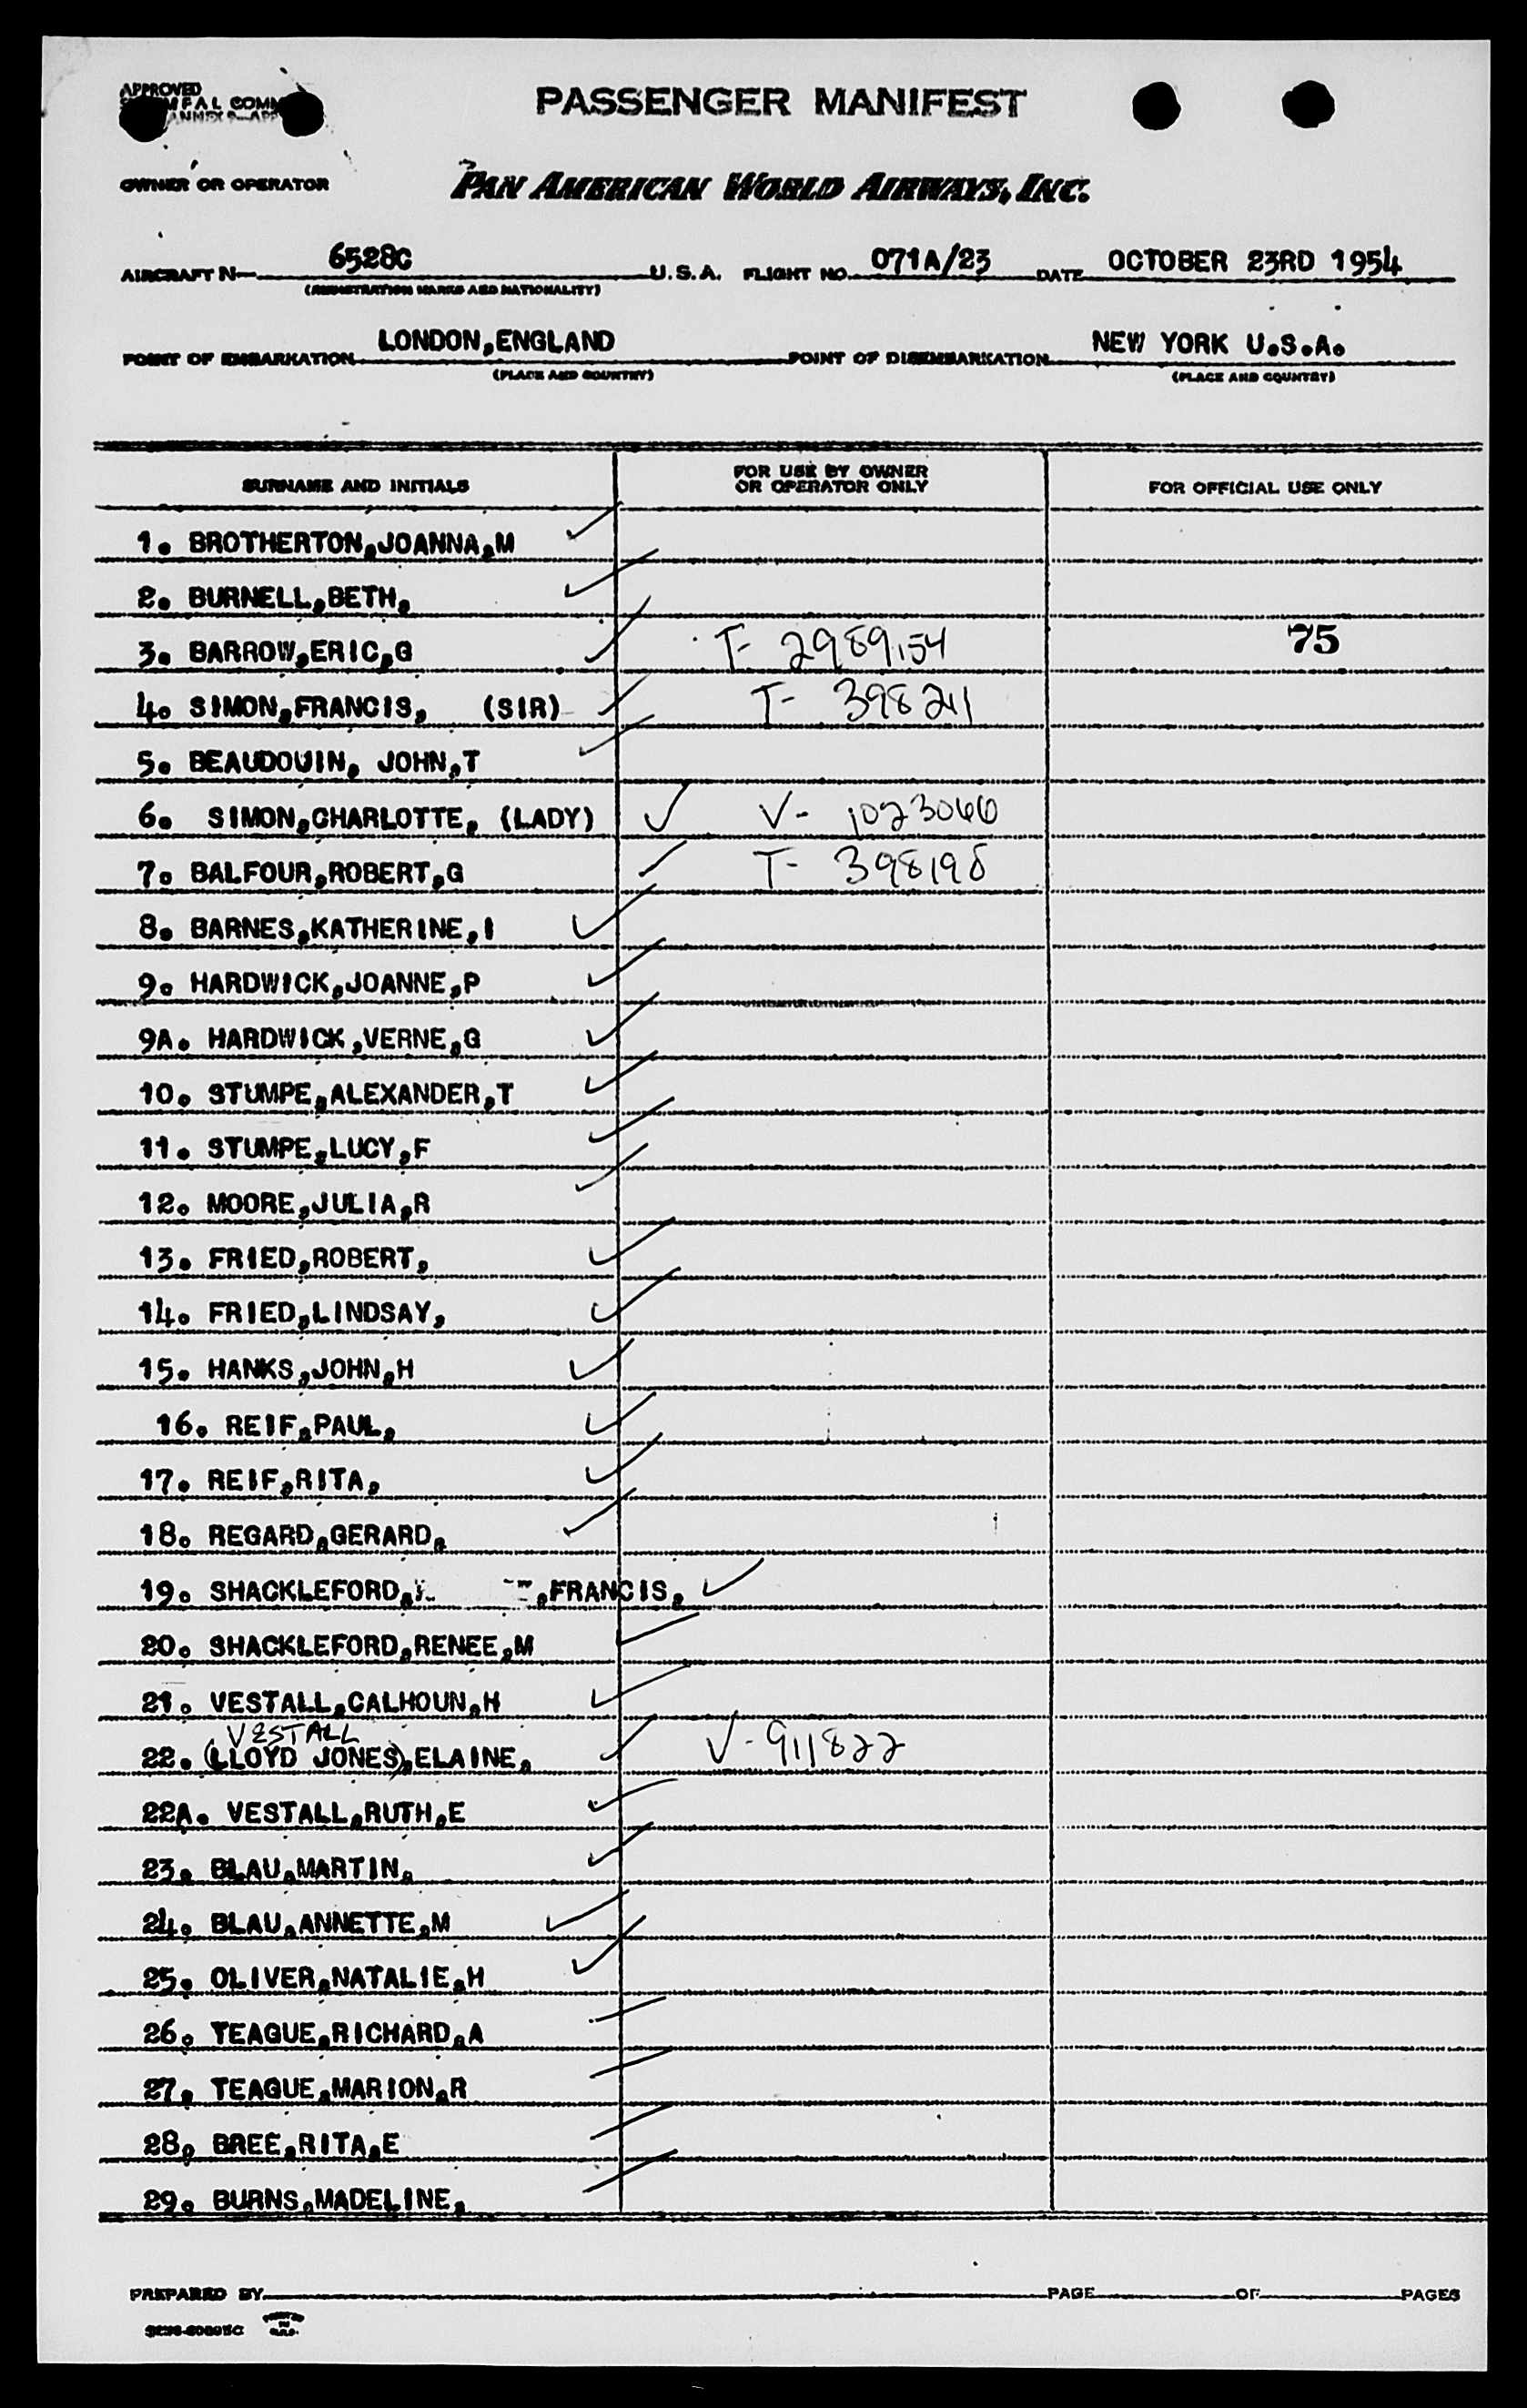 APPROVED
PASSENGER MANIFEST
OWNER OR OPERATOR PAN AMERICAN WORLD AIRWAYS, INC.
AIRCRAFT N- 6528C U.S.A. FLIGHT NO. 071A/23 DATE OCTOBER 23RD 1954
(REGISTRATION MARKS AND NATIONALITY)
POINT OF EMBARKATION LONDON,ENGLAND POINT OF DISEMBARKATION NEW YORK U.S.A.
(PLACE AND COUNTRY) (PLACE AND COUNTRY)
SURNAME AND INITIALS FOR USE BY OWNER OR OPERATOR ONLY FOR OFFICIAL USE ONLY
1. BROTHERTON,JOANNA,M ✓
2. BURNELL,BETH, ✓
3. BARROW,ERIC,G ✓ T- 2989154 75
4. SIMON,FRANCIS, (SIR) ✓ T- 398241
5. BEAUDOUIN, JOHN,T ✓
6. SIMON,CHARLOTTE, (LADY) ✓ V- 1023066
7. BALFOUR,ROBERT,G ✓ T- 398198
8. BARNES,KATHERINE,I ✓
9. HARDWICK,JOANNE,P ✓
9A. HARDWICK,VERNE,G ✓
10. STUMPE,ALEXANDER,T ✓
11. STUMPE,LUCY,F ✓
12. MOORE,JULIA,R ✓
13. FRIED,ROBERT, ✓
14. FRIED,LINDSAY, ✓
15. HANKS,JOHN,H ✓
16. REIF,PAUL, ✓
17. REIF,RITA, ✓
18. REGARD,GERARD, ✓
19. SHACKLEFORD, ,FRANCIS, ✓
20. SHACKLEFORD,RENEE,M ✓
21. VESTALL,CALHOUN,H ✓
VESTALL
22. (LLOYD JONES),ELAINE, ✓ V-911822
22A. VESTALL,RUTH,E ✓
23. BLAU,MARTIN, ✓
24. BLAU,ANNETTE,M ✓
25. OLIVER,NATALIE,H ✓
26. TEAGUE,RICHARD,A ✓
27. TEAGUE,MARION,R ✓
28. BREE,RITA,E ✓
29. BURNS,MADELINE, ✓
PREPARED BY PAGE OF PAGES